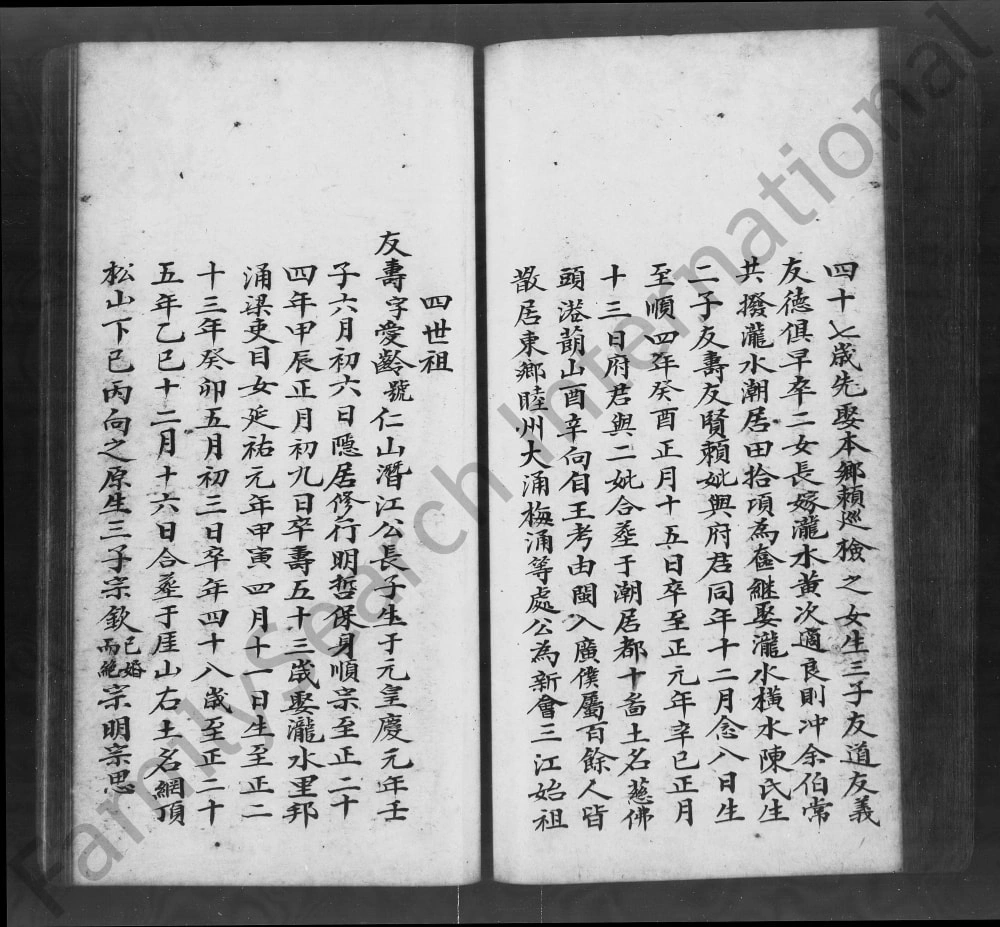 四十七歲先娶本鄉賴巡檢之女生三子友道友義
友德俱早卒二女長嫁瀧水黄次適良則冲余伯常
共撥瀧水潮居田拾項為奩継娶瀧水橫水陳氏生
二子友壽友賢賴妣與府君同年十二月念八日生
至順四年癸酉正月十五日卒至正元年辛巳正月
十三日府君與二妣合塟于潮居都十啚土名慈佛
頭滘萠山酉辛向自王考由閩入廣僕屬百餘人皆
散居東鄉睦州大涌梅涌等處公為新會三江始祖
四世祖
友壽字愛齡號仁山潛江公長子生于元皇慶元年壬
子六月初六日隱居修行明哲保身順宗至正二十
四年甲辰正月初九日卒壽五十三歲娶瀧水里邦
涌梁吏目女延祐元年甲寅四月十一日生至正二
十三年癸卯五月初三日卒年四十八歲至正二十
五年乙巳十二月十六日合塟于厓山右土名網頂
松山下巳丙向之原生三子宗欽已婚而絶宗明宗思
FamilySearch International